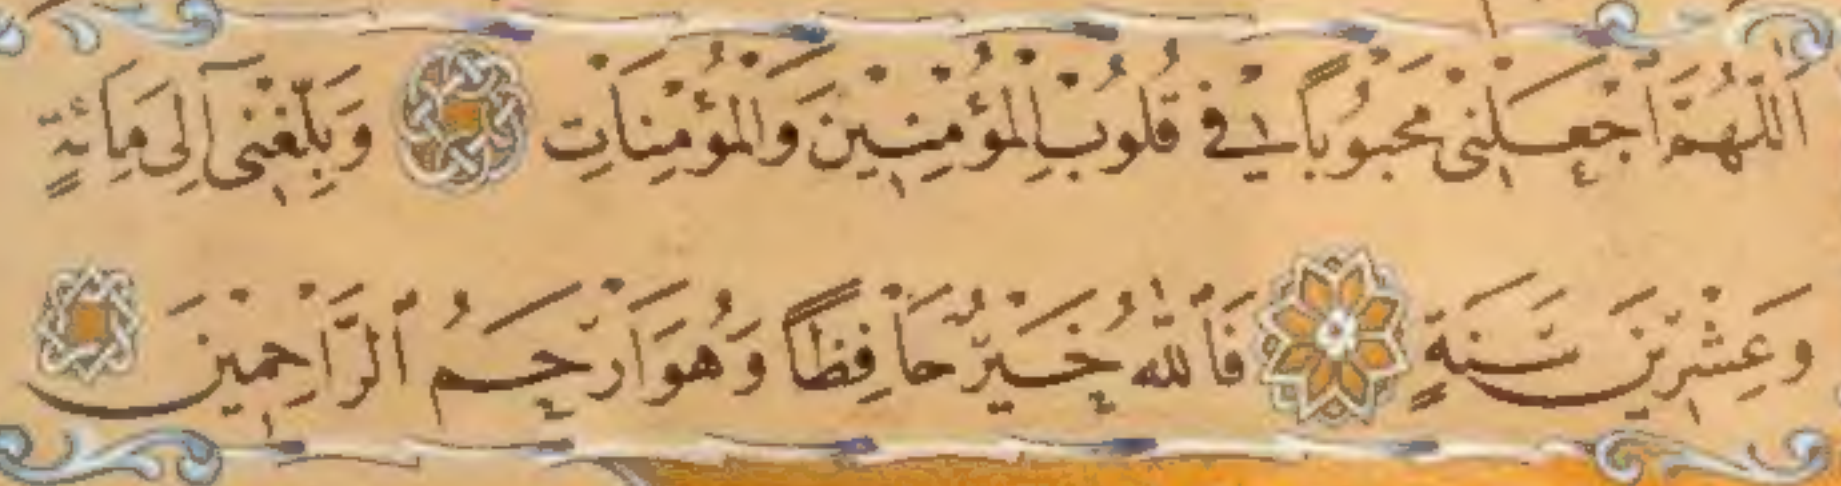 اَللّٰهُمَّ اجْعَلْنِي مَحْبُوبًا فِي قُلُوبِ الْمُؤْمِنِينَ وَالْمُؤْمِنَاتِ وَبَلِّغْنِي اِلَى مِائَةٍ
وَعِشْرِينَ سَنَةٍ فَاللّٰهُ خَيْرٌ حَافِظًا وَهُوَ اَرْحَمُ الرَّاحِمِينَ